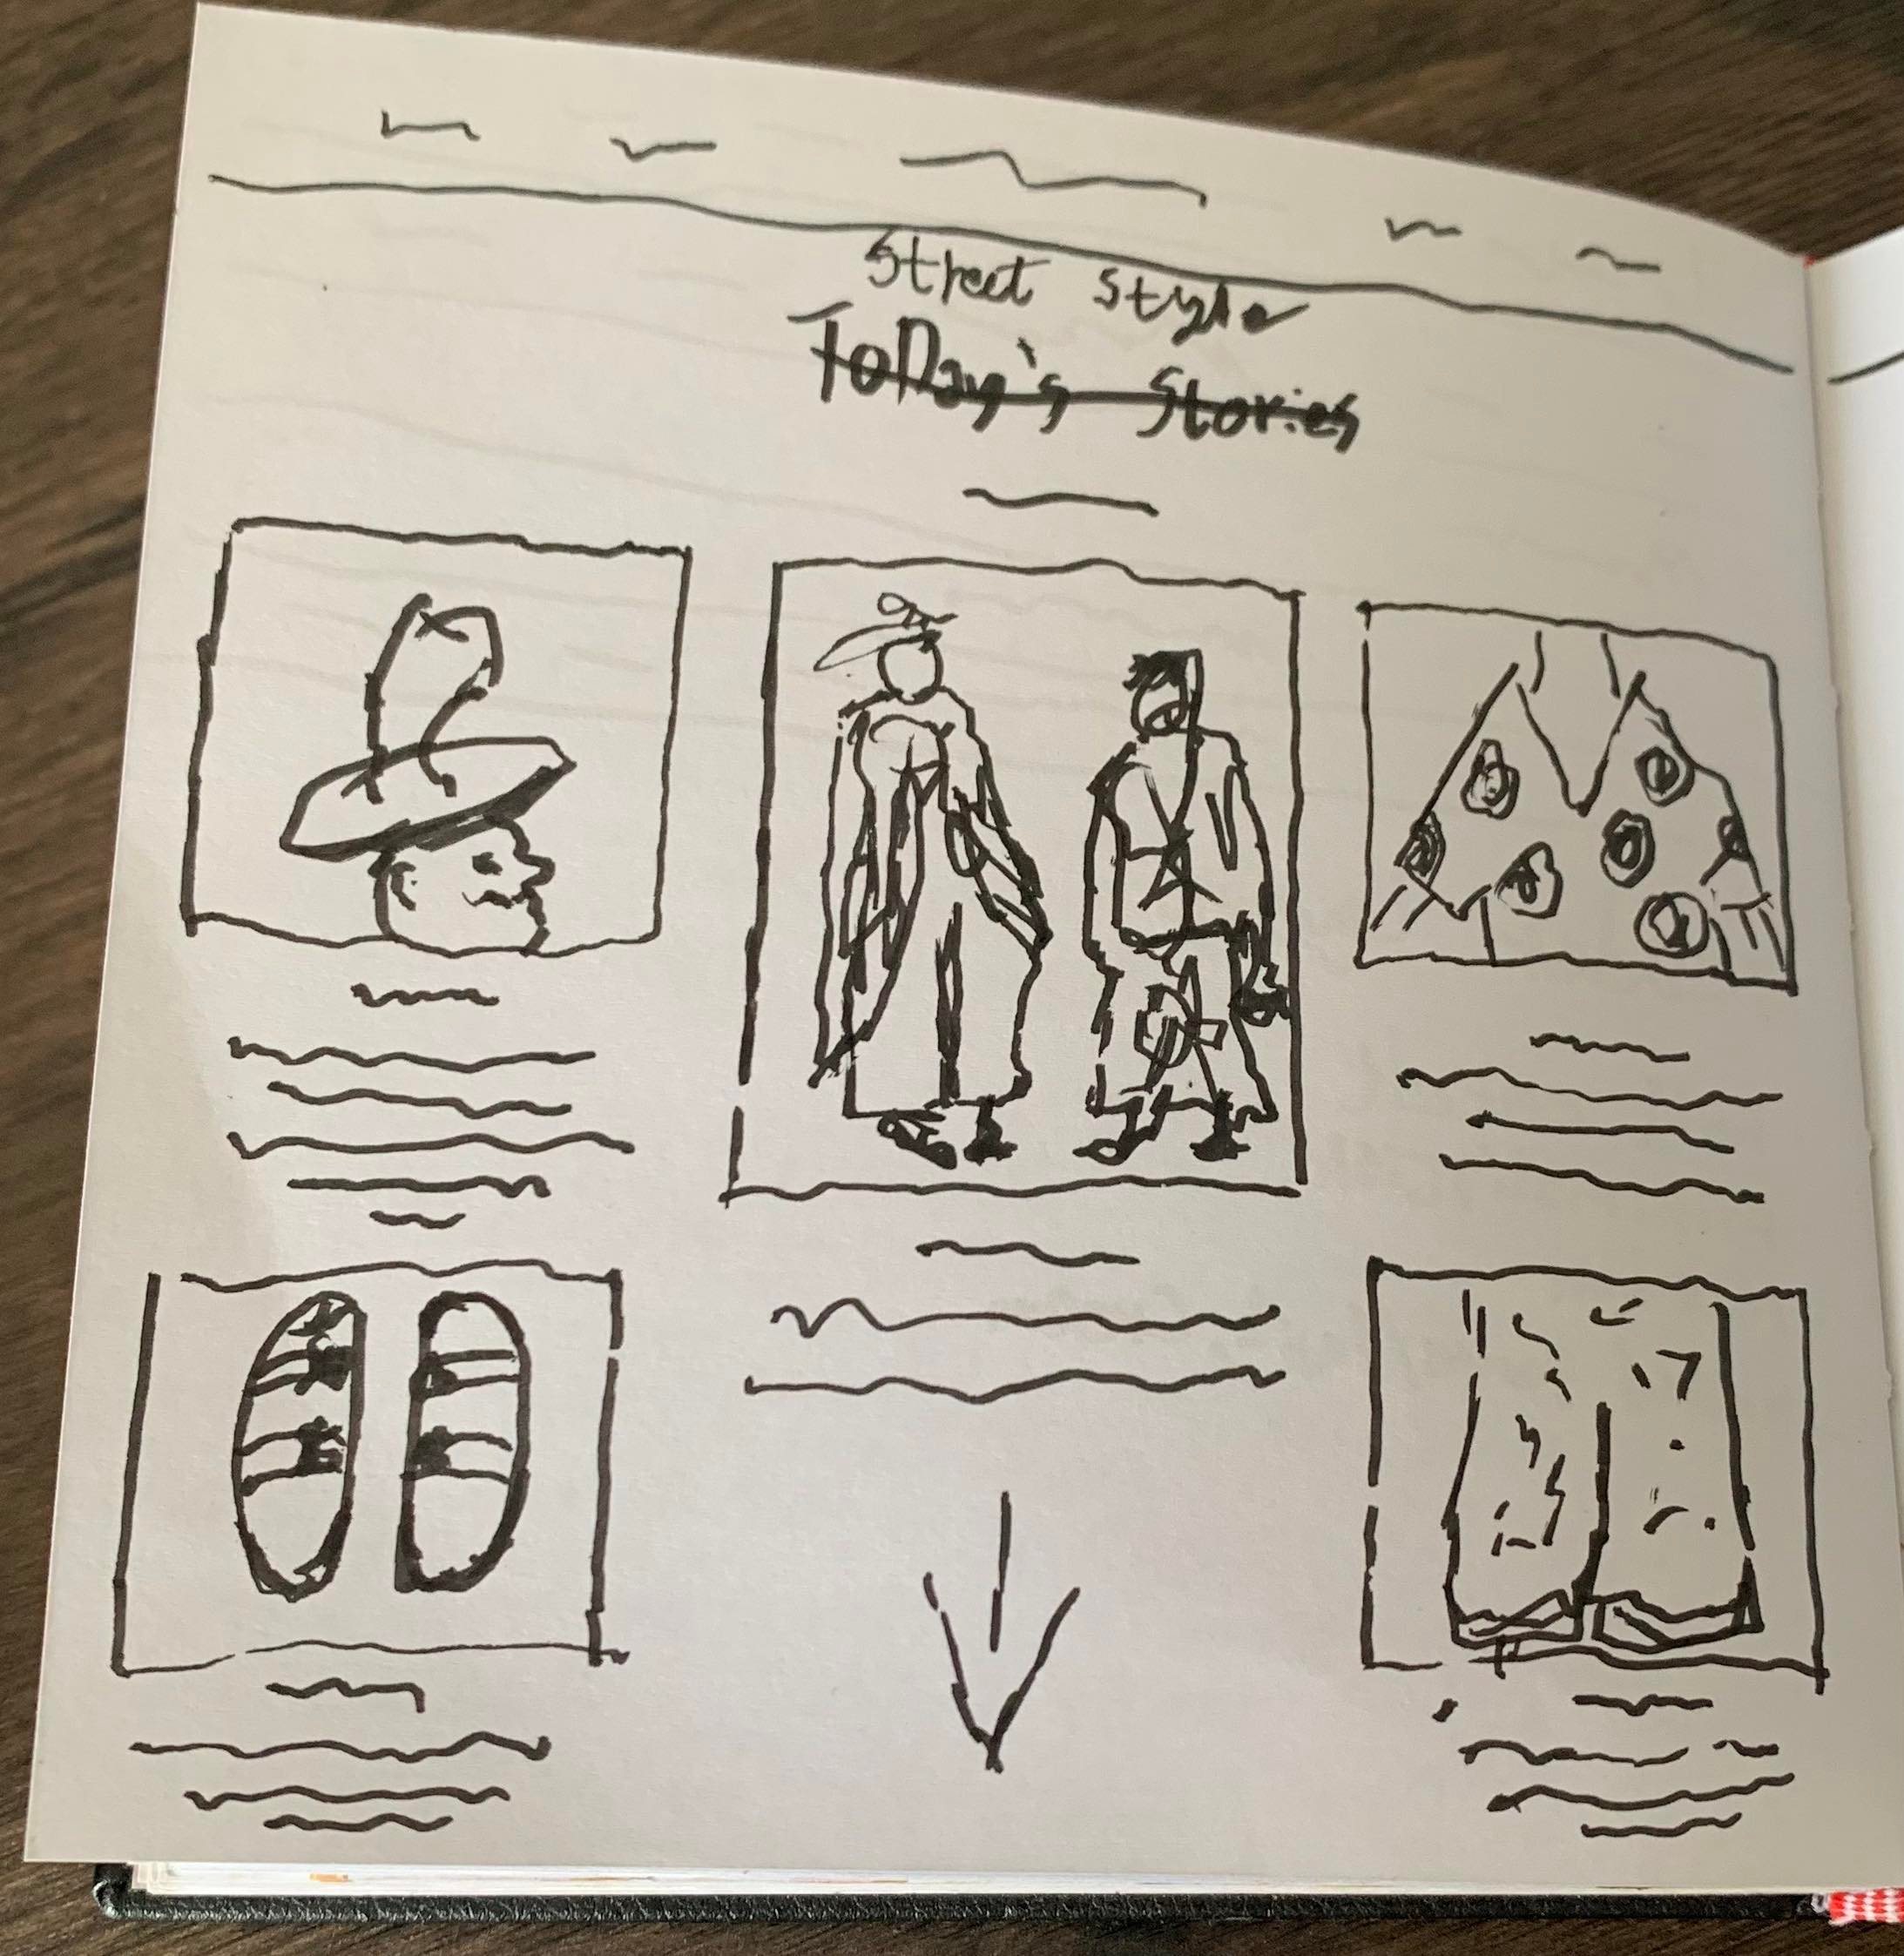 Street Style
ToDay's Stories